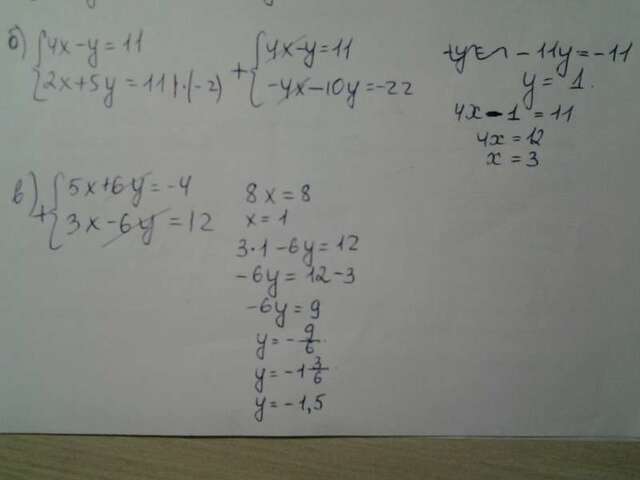 б) { 4x-y=11
{ 2x+5y=11 |·(-2)
+ { 4x-y=11
{ -4x-10y=-22
-11y=-11
y=1.
4x-1=11
4x=12
x=3
в) + { 5x+6y=-4
{ 3x-6y=12
8x=8
x=1
3·1-6y=12
-6y=12-3
-6y=9
y=-9/6
y=-1 3/6
y=-1,5